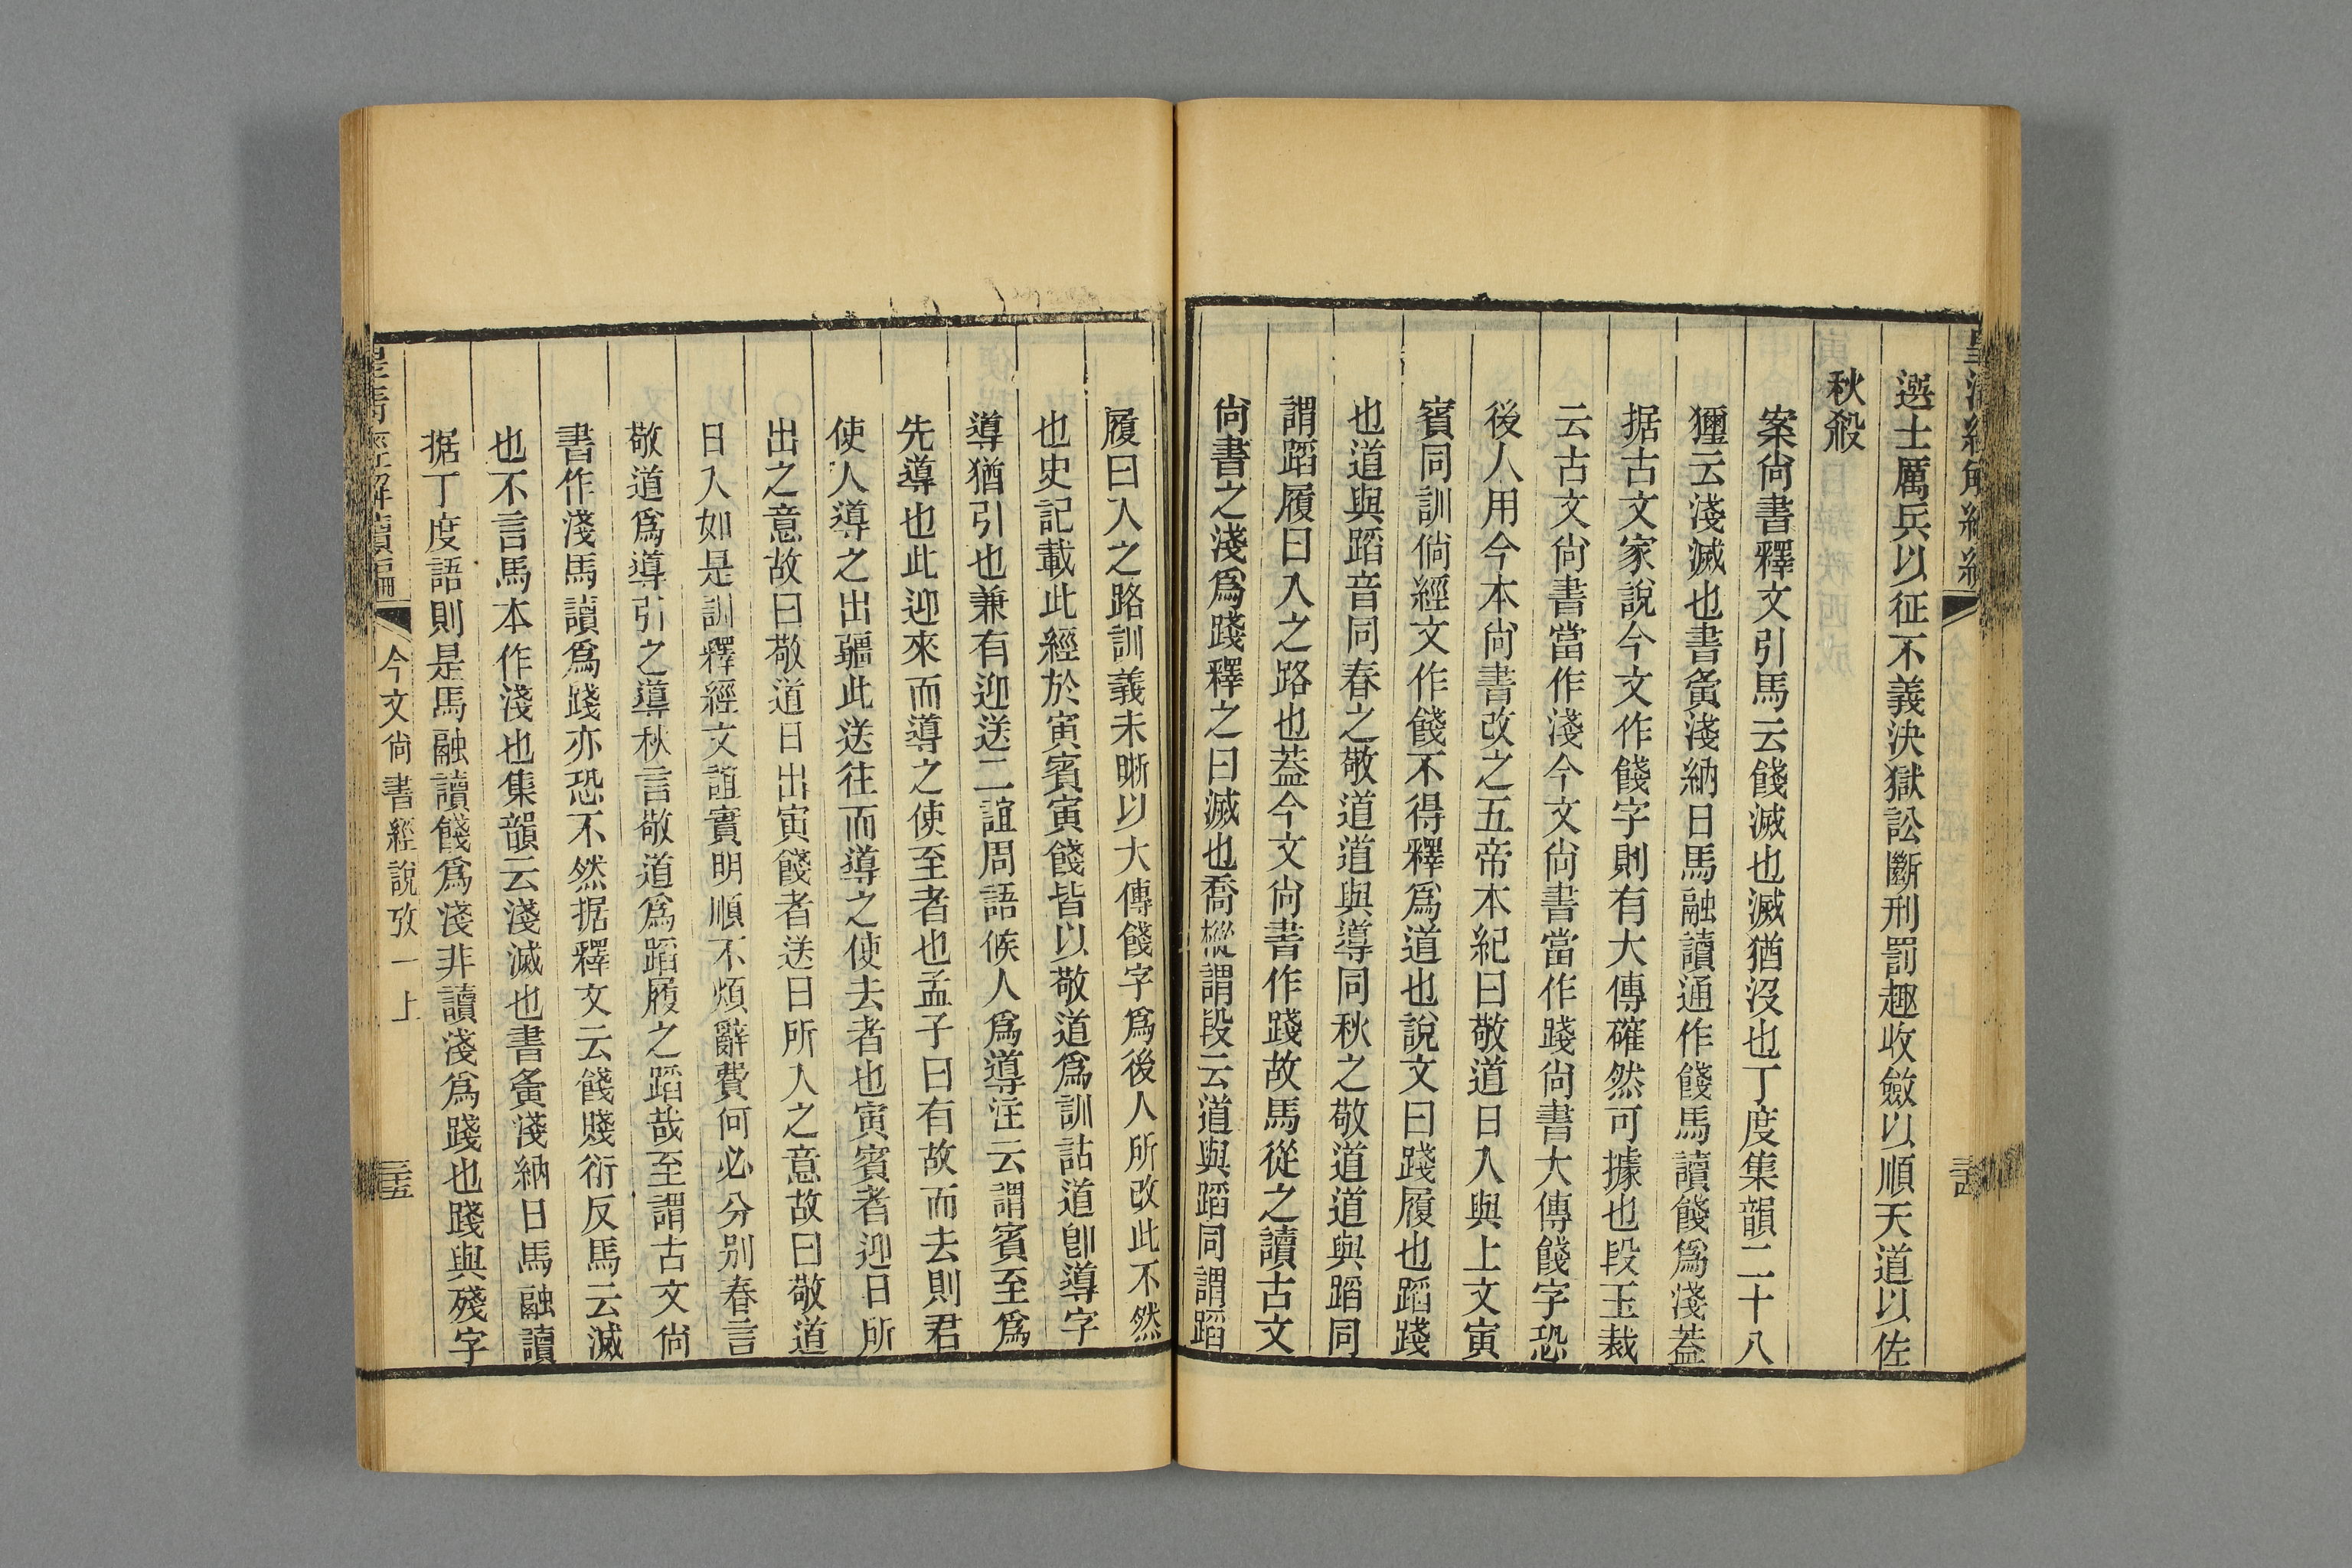 選士厲兵以征不義決獄訟斷刑罰趣收斂以順天道以佐
秋殺
案尚書釋文引馬云餞滅也滅猶沒也丁度集韻二十八
獮云淺滅也書夤淺納日馬融讀通作餞馬讀餞爲淺葢
据古文家說今文作餞字則有大傳確然可據也段玉裁
云古文尚書當作淺今文尚書當作踐尚書大傳餞字恐
後人用今本尚書改之五帝本紀曰敬道日入與上文寅
賓同訓倘經文作餞不得釋爲道也說文曰踐履也蹈踐
也道與蹈音同春之敬道道與導同秋之敬道道與蹈同
謂蹈履日入之路也葢今文尚書作踐故馬從之讀古文
尚書之淺爲踐釋之曰滅也喬樅謂段云道與蹈同謂蹈
履日入之路訓義未晰以大傳餞字爲後人所改此不然
也史記載此經於寅賓寅餞皆以敬道爲訓詁道卽導字
導猶引也兼有迎送二誼周語候人爲導注云謂賓至爲
先導也此迎來而導之使至者也孟子曰有故而去則君
使人導之出疆此送往而導之使去者也寅賓者迎日所
出之意故曰敬道日出寅餞者送日所入之意故曰敬道
日入如是訓釋經文誼實明順不煩辭費何必分別春言
敬道爲導引之導秋言敬道爲蹈履之蹈哉至謂古文尚
書作淺馬讀爲踐亦恐不然据釋文云餞賤衍反馬云滅
也不言馬本作淺也集韻云淺滅也書夤淺納日馬融讀
据丁度語則是馬融讀餞爲淺非讀淺爲踐也踐與殘字
皇淸經解續編
今文尚書經說攷一上
三五